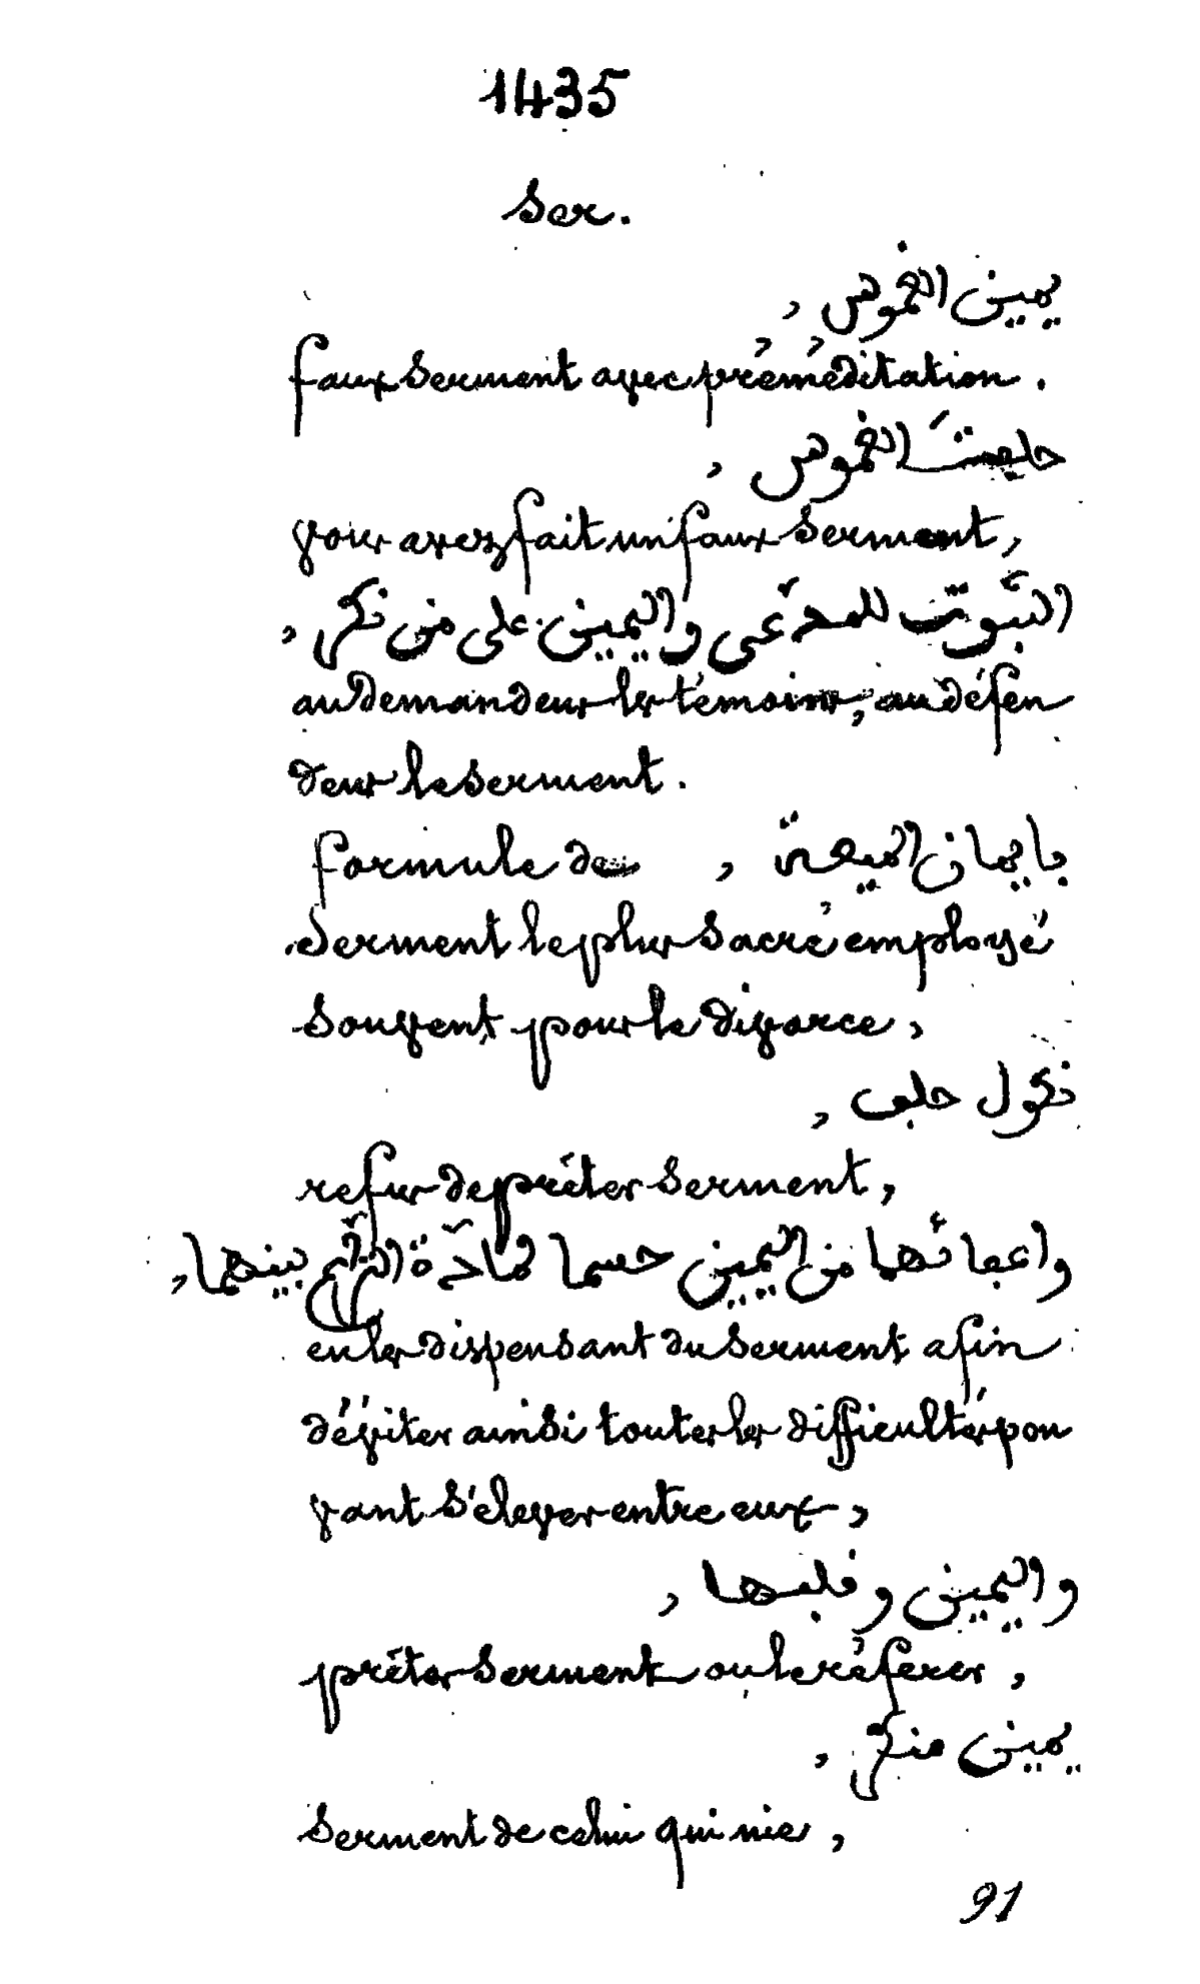 1435
Ser.
يمين الغموس ,
faux serment avec préméditation.
حلفت الغموس ,
vous avez fait un faux serment,
الثبوت للمدّعى واليمين على من نكر ,
au demandeur les témoins, au défen
deur le serment.
بايمان البيعة , formule de
serment le plus sacré employé
souvent pour le divorce,
نكول حلف ,
refus de prêter serment,
واعفائهما من اليمين حسما لمادّة النزاع بينهما,
en les dispensant du serment afin
d'éviter ainsi toutes les difficultés pou
vant s'élever entre eux,
واليمين وقلبها ,
prêter serment ou le référer,
يمين منكر ,
serment de celui qui nie,
91